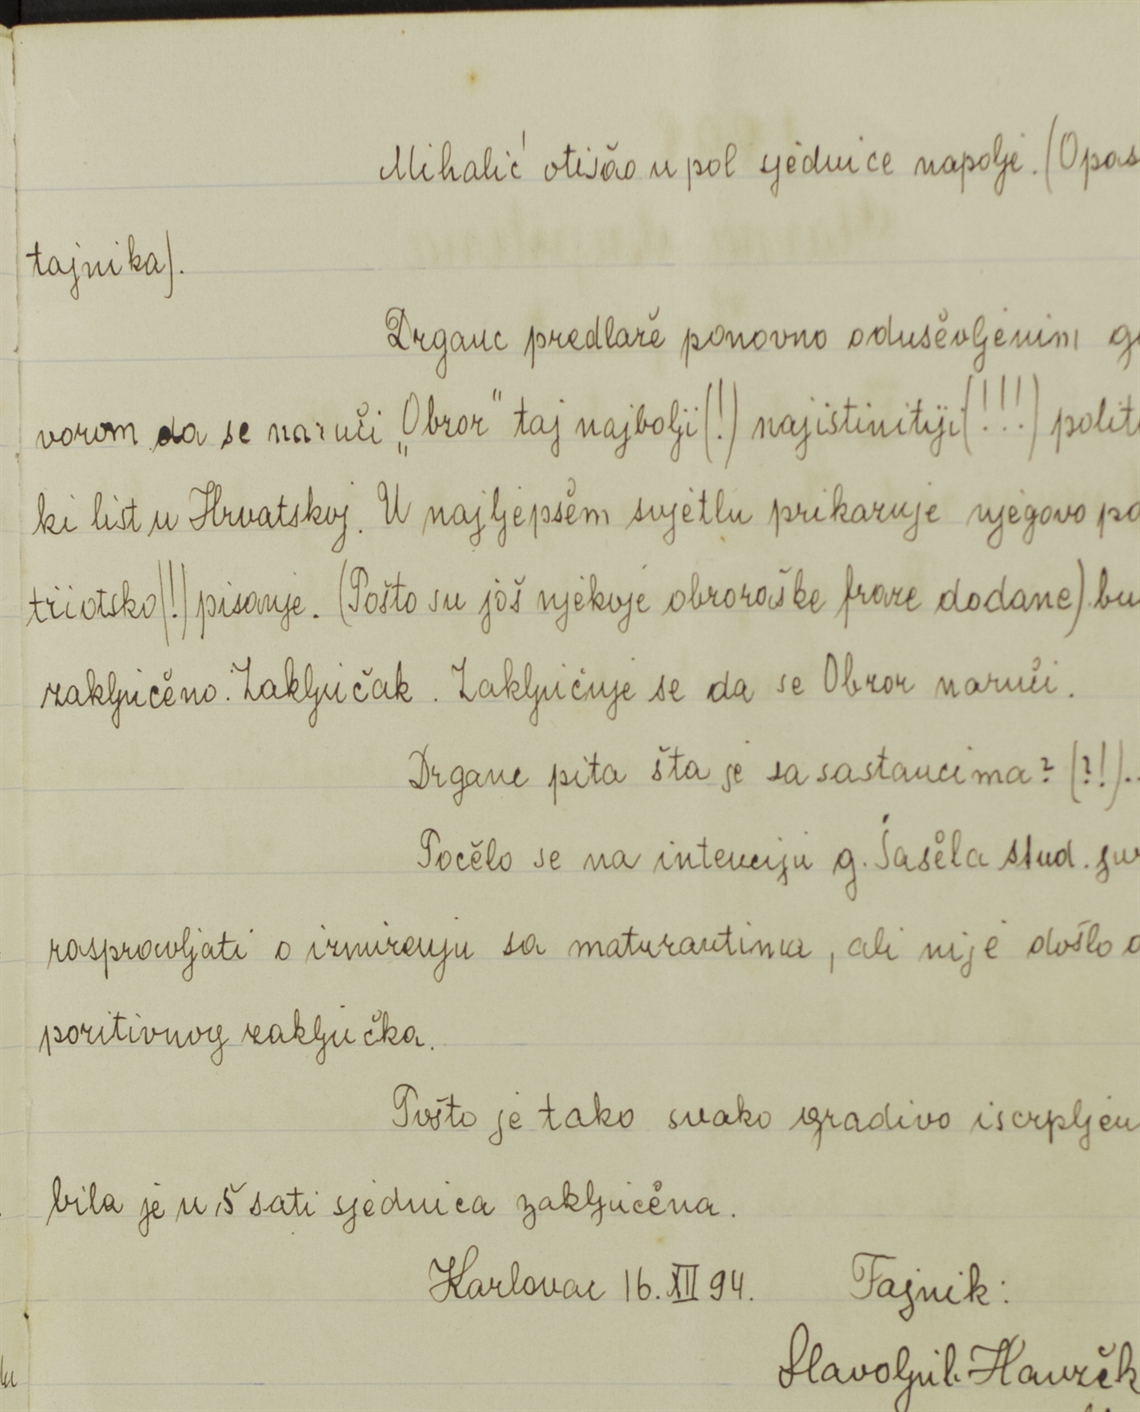 Mihalić otišao u pol sjednice napolje. (Opas
tajnika).
Drganc predlaže ponovno oduševljenim go
vorom da se naruči „Obzor" taj najbolji(!) najistinitiji(!!!) politi
ki list u Hrvatskoj. U najljepšem svjetlu prikazuje njegovo pa
triotsko(!) pisanje. (Pošto su još njekoje obzoraške fraze dodane) bu
zaključeno. Zaključak. Zaključuje se da se Obzor naruči.
Drganc pita šta je sa sastancima? (?!)..
Počelo se na intenciju g. Šašela stud. jur
raspravljati o izmirenju sa maturantima, ali nije došlo d
pozitivnog zaključka.
Pošto je tako svako gradivo iscrpljen
bila je u 5 sati sjednica zaključena.
Karlovac 16. XII 94. Tajnik:
Slavoljub Hauzek